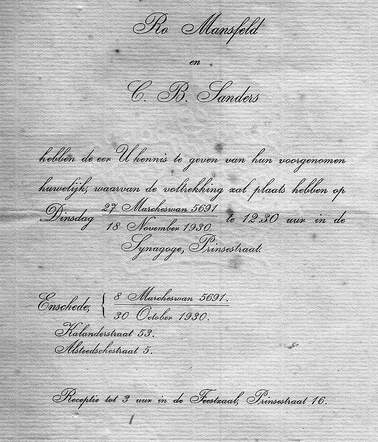 Ro Mansfeld
en
C. B. Sanders
hebben de eer U kennis te geven van hun voorgenomen
huwelijk, waarvan de voltrekking zal plaats hebben op
Dinsdag 27 Marcheswan 5691 / 18 November 1930 te 12.30 uur in de
Synagoge, Prinsestraat.
Enschede, { 8 Marcheswan 5691. / 30 October 1930.
Kalanderstraat 53.
Alsteedschestraat 5.
Receptie tot 3 uur in de Feestzaal, Prinsestraat 16.